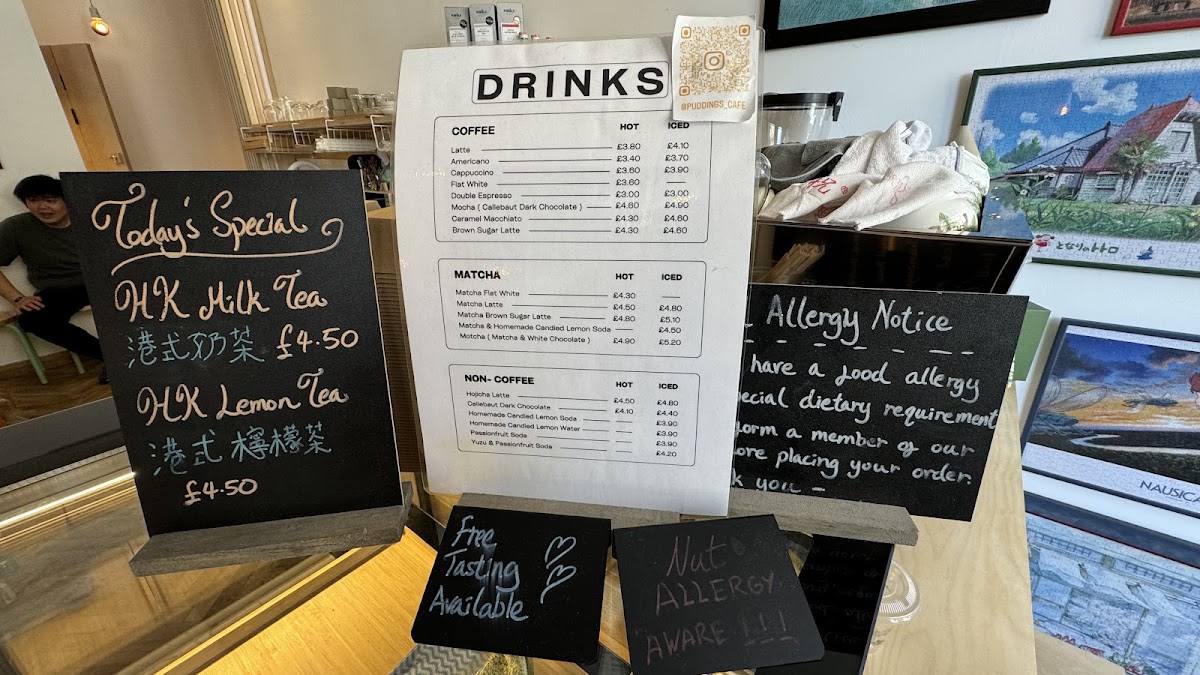 Today's Special
HK Milk Tea
港式奶茶 £4.50
HK Lemon Tea
港式檸檬茶
£4.50
DRINKS
@PUDDINGS_CAFE
COFFEE HOT ICED
Latte £3.80 £4.10
Americano £3.40 £3.70
Cappuccino £3.60 £3.90
Flat White £3.60 —
Double Espresso £3.00 £3.00
Mocha ( Callebaut Dark Chocolate ) £4.60 £4.90
Caramel Macchiato £4.30 £4.60
Brown Sugar Latte £4.30 £4.60
MATCHA HOT ICED
Matcha Flat White £4.30 —
Matcha Latte £4.50 £4.80
Matcha Brown Sugar Latte £4.80 £5.10
Matcha & Homemade Candied Lemon Soda — £4.50
Motcha ( Matcha & White Chocolate ) £4.90 £5.20
NON- COFFEE HOT ICED
Hojicha Latte £4.50 £4.80
Callebaut Dark Chocolate £4.10 £4.40
Homemade Candied Lemon Soda — £3.90
Homemade Candied Lemon Water — £3.90
Passionfruit Soda — £3.90
Yuzu & Passionfruit Soda — £4.20
Allergy Notice
have a food allergy
ecial dietary requirement
form a member of our
ore placing your order.
k you —
Free
Tasting
Available
Nut
ALLERGY
AWARE !!!
となりのトトロ
NAUSICA